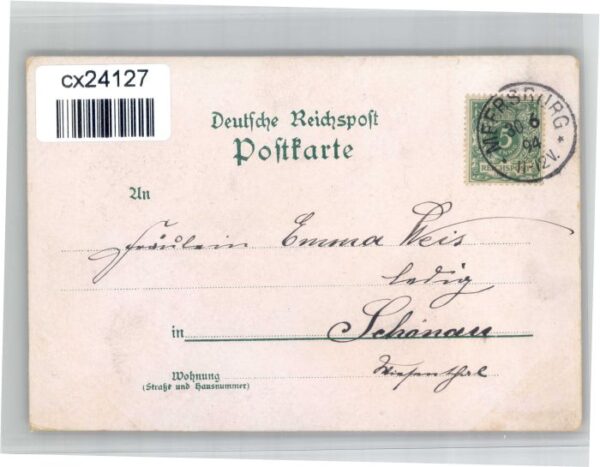 cx24127
Deutsche Reichspost
Postkarte
MEERSBURG *
30 6
94
11-12V.
5
REICHSPOST
An
Fräulein Emma Weis
ledig
in Schönau
Wiesenthal
Wohnung
(Straße und Hausnummer)